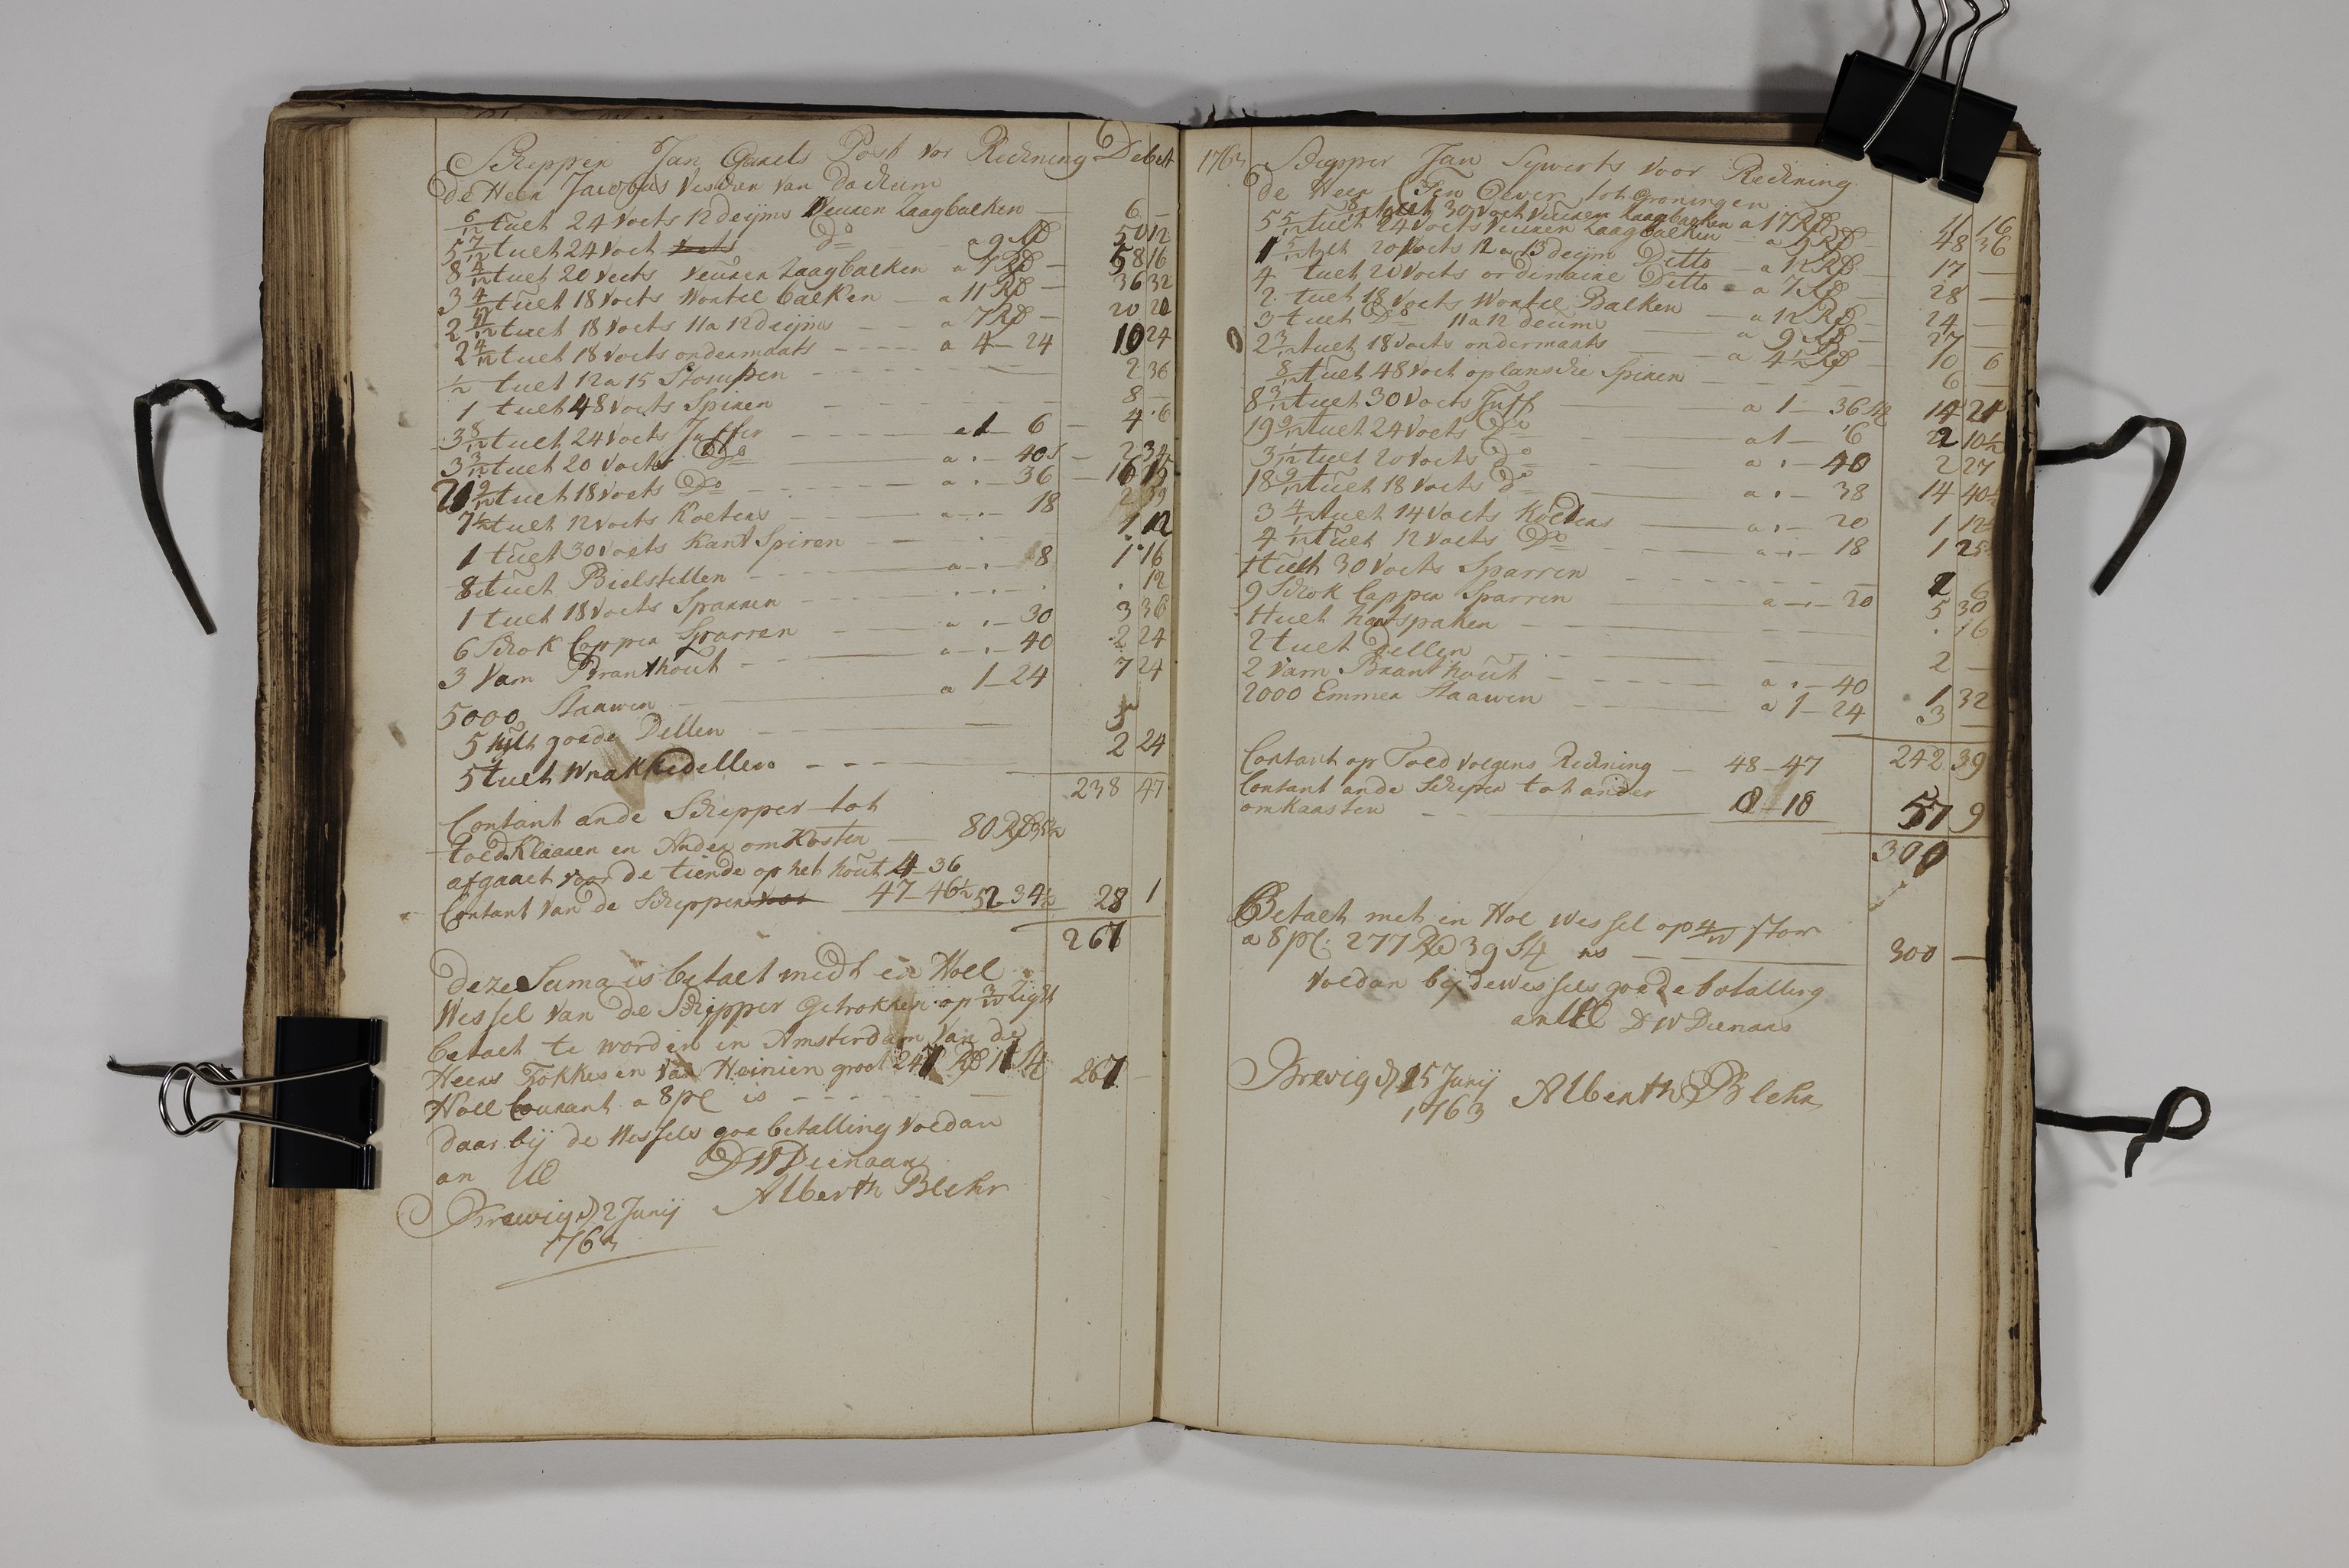 Schipper Jan Garels Post vor Rechning Debet
de Heer Jacobus Vesscher van Dackum
6/12 tuelt 24 Voets 12 deijms Veuren Zaagbalken — 6 —
5 7/12 tuelt 24 Voet Do a 9 RD 50 12
8 4/12 tuelt 20 Voets Veuren Zaagbalken a 7 RD — 58 16
3 4/12 tuelt 18 Voets Wortel balken — a 11 RD — 36 32
2 11/12 tuelt 18 Voets 11 a 12 deijms — a 7 RD — 20 20
2 4/12 tuelt 18 Voets ondermaats — a 4 — 24 10 24
1/2 tuelt 12 a 15 Stompen — 2 36
1 tuelt 48 Voets Spiren — 8 —
3 8/12 tuelt 24 Voets Juffer — a 1 — 6 — 4 6
3 3/12 tuelt 20 Voets Do — a . — 40 s — 2 34
21 9/12 tuelt 18 Voets Do — a . — 36 — 16 15
7 1/2 tuelt 12 Voets Koeters — a . — 18 2 39
1 tuelt 30 Voets Kant Spiren — 1 12
8 tuelt Bielstellen — a . — 8 1 16
1 tuelt 18 Voets Sparren — . 12
6 Schok Copper Sparren — a . — 30 3 36
3 Vam Branthout — a . — 40 2 24
5000 Staawen — a 1 — 24 7 24
5 tult goede Dellen — 5
5 tuelt Wrakkedellen — 2 24
238 47
Contant ande Schipper tot
toedKlaaren en Ander omKosten — 80 RD 35 1/2
afgaaet voor de tiende op het hout 4 — 36
Contant Van de Schipper 47 — 46 1/2 52 34 1/2 28 1
267
Deze Suma is betaelt midt en Holl
Wessel Van de Schipper Getrokken op 3/W Zight
betaelt te worden in Amsterdam Van de
Heers Fokkes en Van Heinien groot 247 RD 11 St 267 —
Holl Courant a 8 pC is —
daar bij de Wessels goe betalling Voldan
an UE DW Dienaar
Alberth Blehr
Brewig d 2 Junij
1763
1763 Schipper Jan Sywerts Voor Rechning
de Heer Ten Oever tot Groningen
8/12 tuelt 30 Voet Veuren Zaagbalken a 17 RD 11 16
5 5/12 tuelt 24 Voets Veuren Zaagbalken — a 9 RD — 48 36
1 5/12 tult 20 Voets 12 a 13 deijm Ditto — a 12 RD — 17 —
4 tuelt 20 Voets ordinaire Ditto — a 7 RD — 28 —
2 tuelt 18 Voets Wortel Balken — a 12 RD — 24 —
3 tuelt Do 11 a 12 deum — a 9 RD — 27 —
2 3/12 tuelt 18 Voets ondermaats — a 4 1/2 RD 10 6
8/12 tuelt 48 Voet oplansche Spiren — 6 —
8 3/12 tuelt 30 Voets Juff — a 1 — 36 St 14 21
19 9/12 tuelt 24 Voets Do — a 1 — 6 22 10 1/2
3 1/12 tuelt 20 Voets Do — a . — 40 2 27
18 9/12 tuelt 18 Voets do — a . — 38 14 40 1/2
3 4/12 tuelt 14 Voets Koeters — a . — 20 1 12
4 1/12 tuelt 12 Voets Do — a . — 18 1 25
1 tuelt 30 Voets Sparren — 1 6
9 Schok Copper Sparren — a . — 20 5 30
1 tuelt hantspaken — . 16
2 tuelt Dellen — 2 —
2 Vam Branthout — a . — 40 1 32
2000 Emmer Staawen — a 1 — 24 3 —
242 39
Contant op Toed volgens Rechning — 48 — 47
Contant ande Schiper tot ander
omkaasten — 8 — 10 57 9
300
Betaelt met en Hol Wessel op 4/W
a 8 pC. 277 RD 39 St is — 300 —
Voldan bij de Wessels goede betalling
an UE DW Dienaar
Brevig d 15 Junij
1763 Alberth Blehr